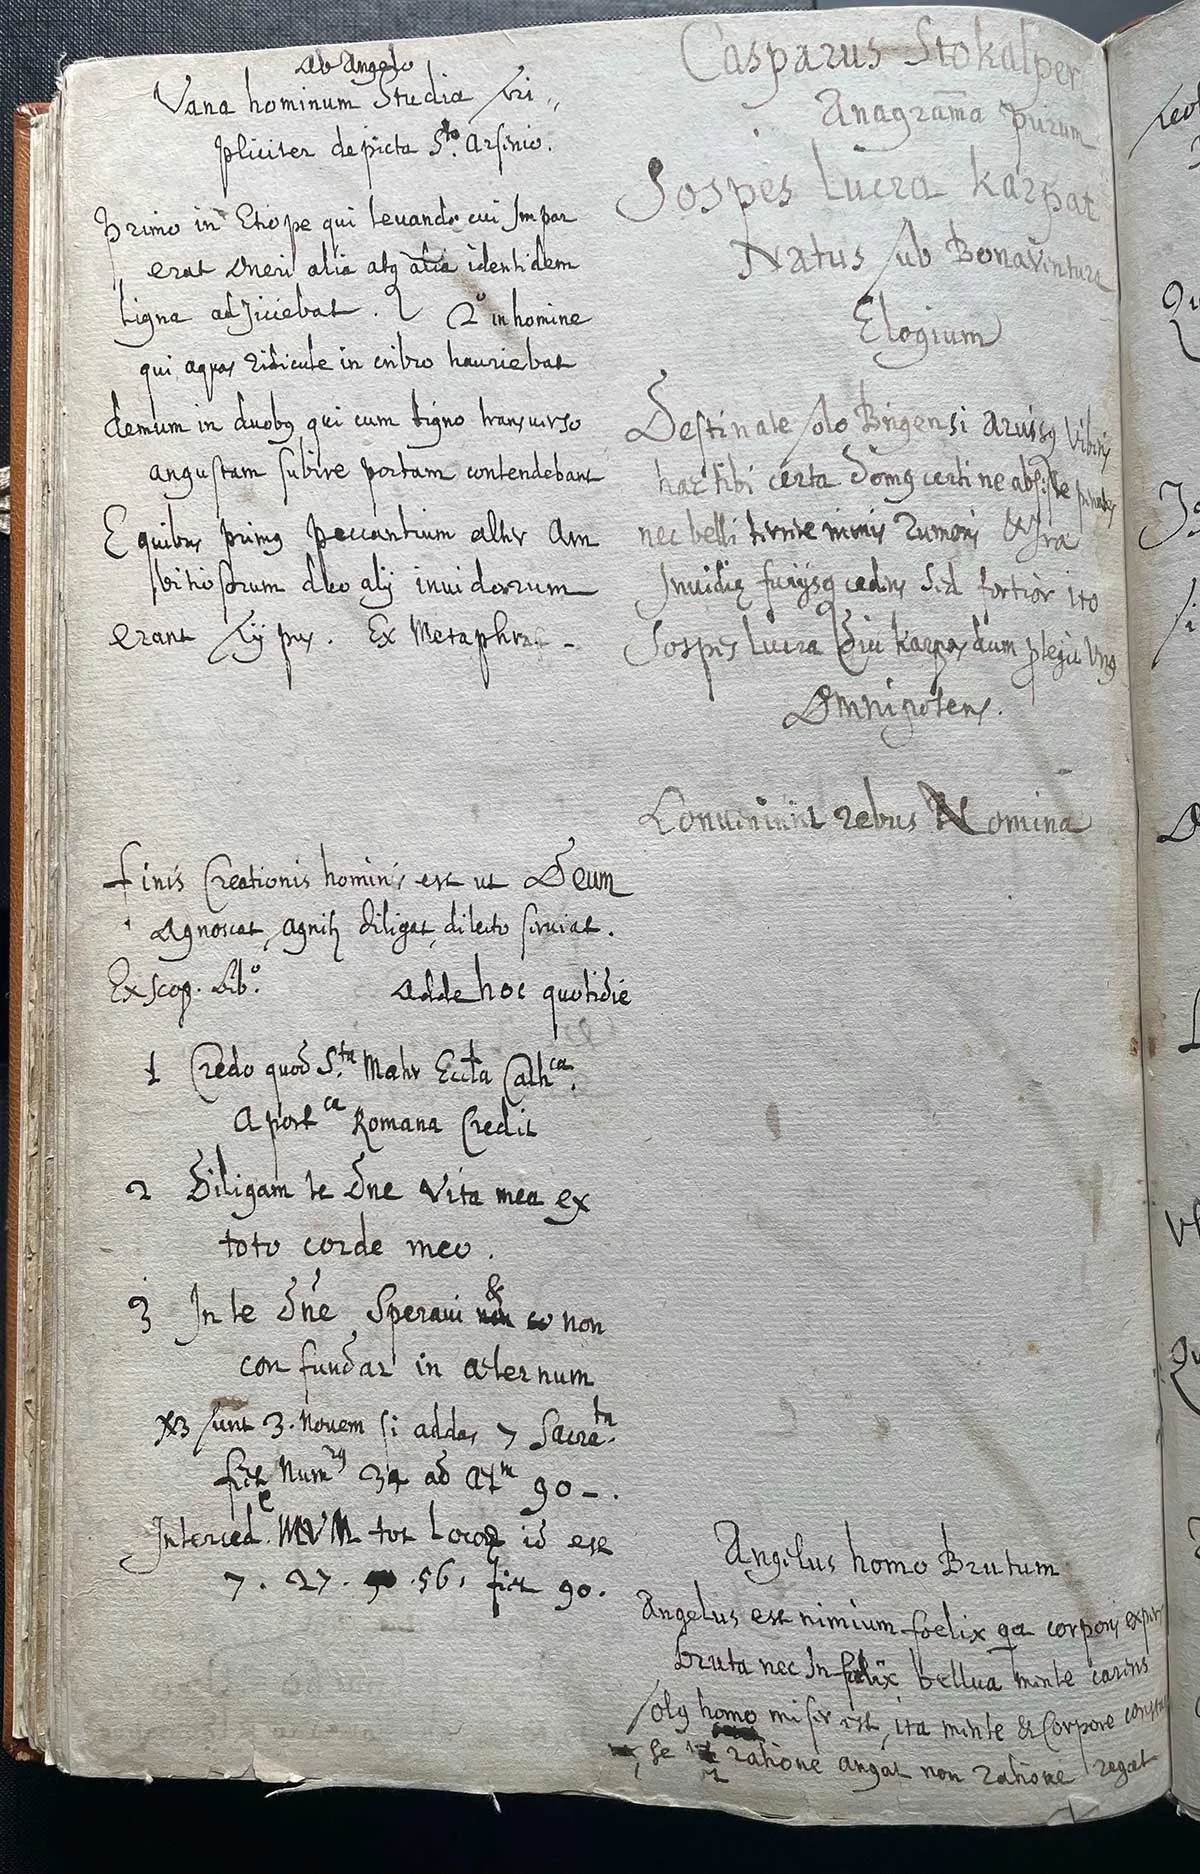 ab Angelo
Vana hominum Studia tri„
pliciter depicta S.to Arsenio.
Primo in Etiope qui levando cui Impar
erat Oneri alia atq alia identidem
Ligna adjiciebat. 2º in homine
qui aquas ridicule in cribro hauriebat
demum in duobq qui cum tigno transverso
angustam subire portam contendebant
E quibus primq peccantium alter Am
bitiosorum duo alij invidorum
erant typus. Ex Metaphras
Finis Creationis hominis est ut Deum
Agnoscat, agnitq diligat, dilecto serviat.
Ex scop. Lib.º adde hoc quotidie
1 Credo quod S.ta Mater Eccta Cath.ca
Apost ca Romana Credit
2 Diligam te Dne Vita mea ex
toto corde meo.
3 In te Dne Speravi & non
confundar in aeternum
X3 sunt 3. Novem si addas 7 Sacra.ta
fit Num 34 ad 90 - .
Interced. MVM tot Locoq id est
7 . 27 . 56 . fit 90.
Casparus Stokalper
Anagrama Purum
Sospes Lucra karpat
Natus sub Bonaventura
Elogium
Destinate solo Brigensi arvisq Viberis
haec tibi certa domq certi ne absiste penates
nec belli terrere minis rumoris & Ira
Invidiae furijsq cedas sed fortior ito
Sospes lucra diu karpas dum plegit Unq
Omnipotens.
Conveniunt rebus Nomina
Angelus homo Brutum
Angelus est nimium foelix qa corporis expers
bruta nec Infelix bellua mente carens
solq homo miser est, ita mente & Corpore constat
se ratione angat non ratione regat